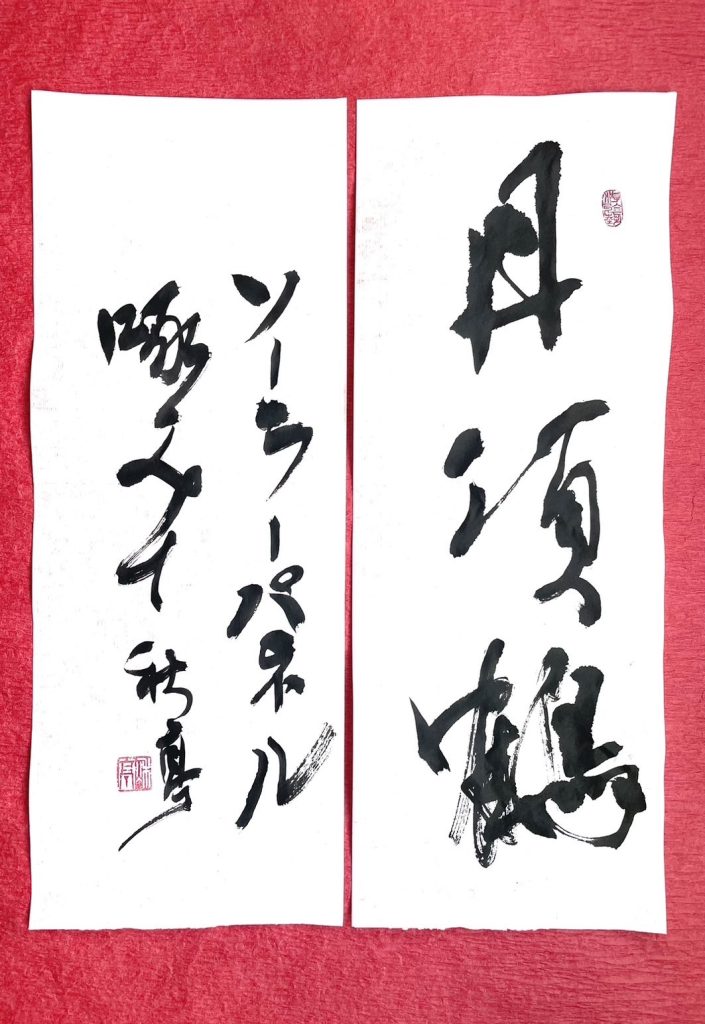 丹頂鶴
ソーラーパネル
啄 秋亭